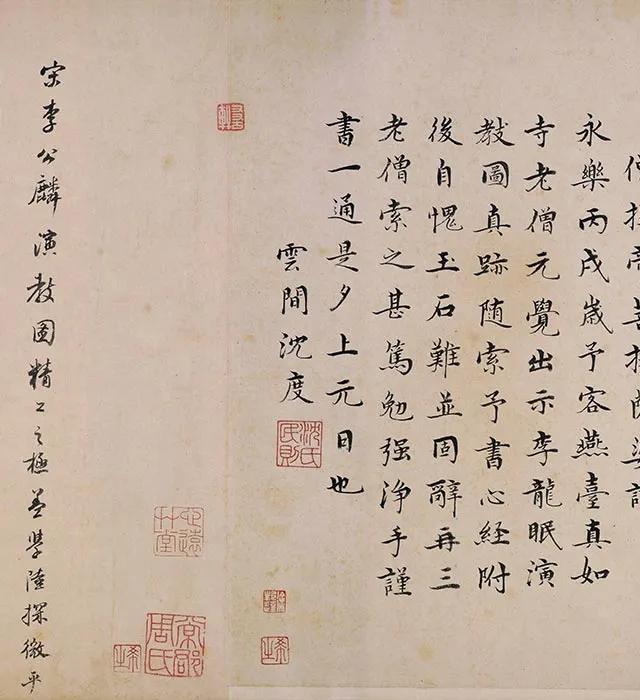 僧揭諦菩提薩婆訶
永樂丙戌歲予客燕臺真如
寺老僧元覺出示李龍眠演
教圖真跡随索予書心經附
後自愧玉石難並固辭再三
老僧索之甚篤勉强浄手謹
書一通是夕上元日也
雲間沈度
沈氏民則
宋李公麟演教图精工之極盖學陸探微平